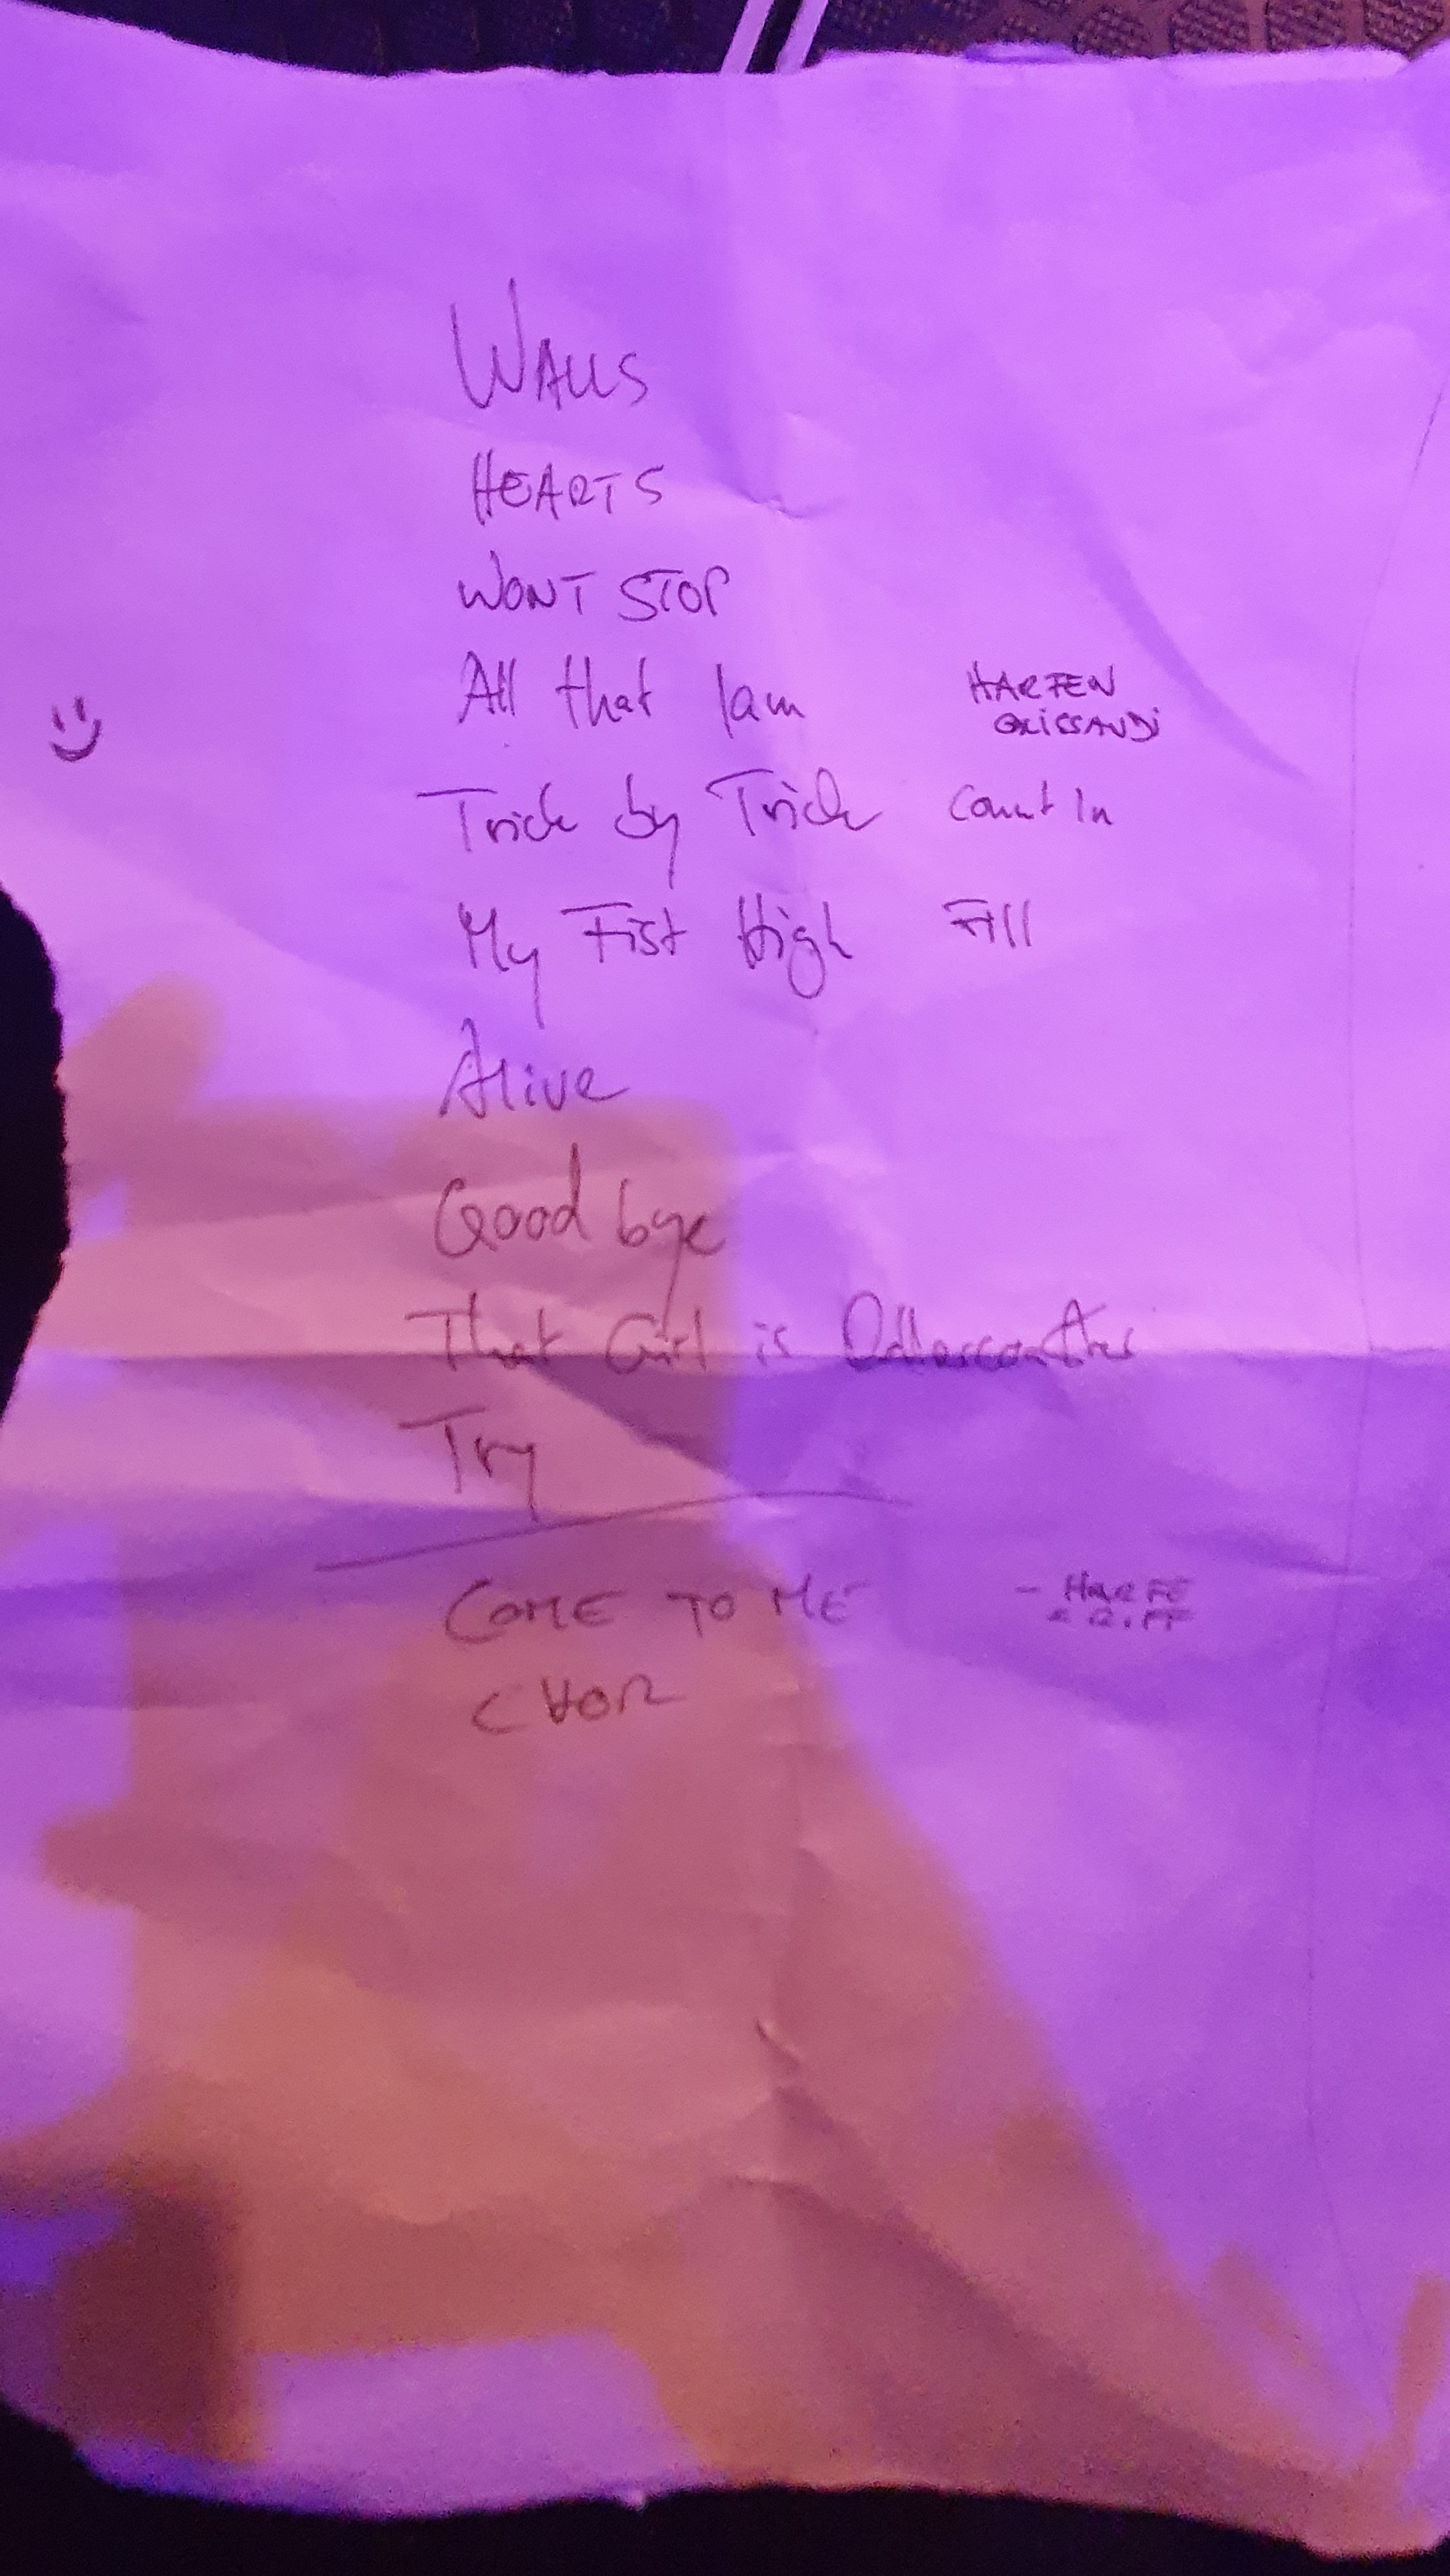 WALLS
HEARTS
WONT STOP
All that I am HARFEN
GLISSANDI
Trick by Trick Count In
My Fist High Fill
Alive
Good bye
That Girl is
Try
COME TO ME - HARFE
CHOR